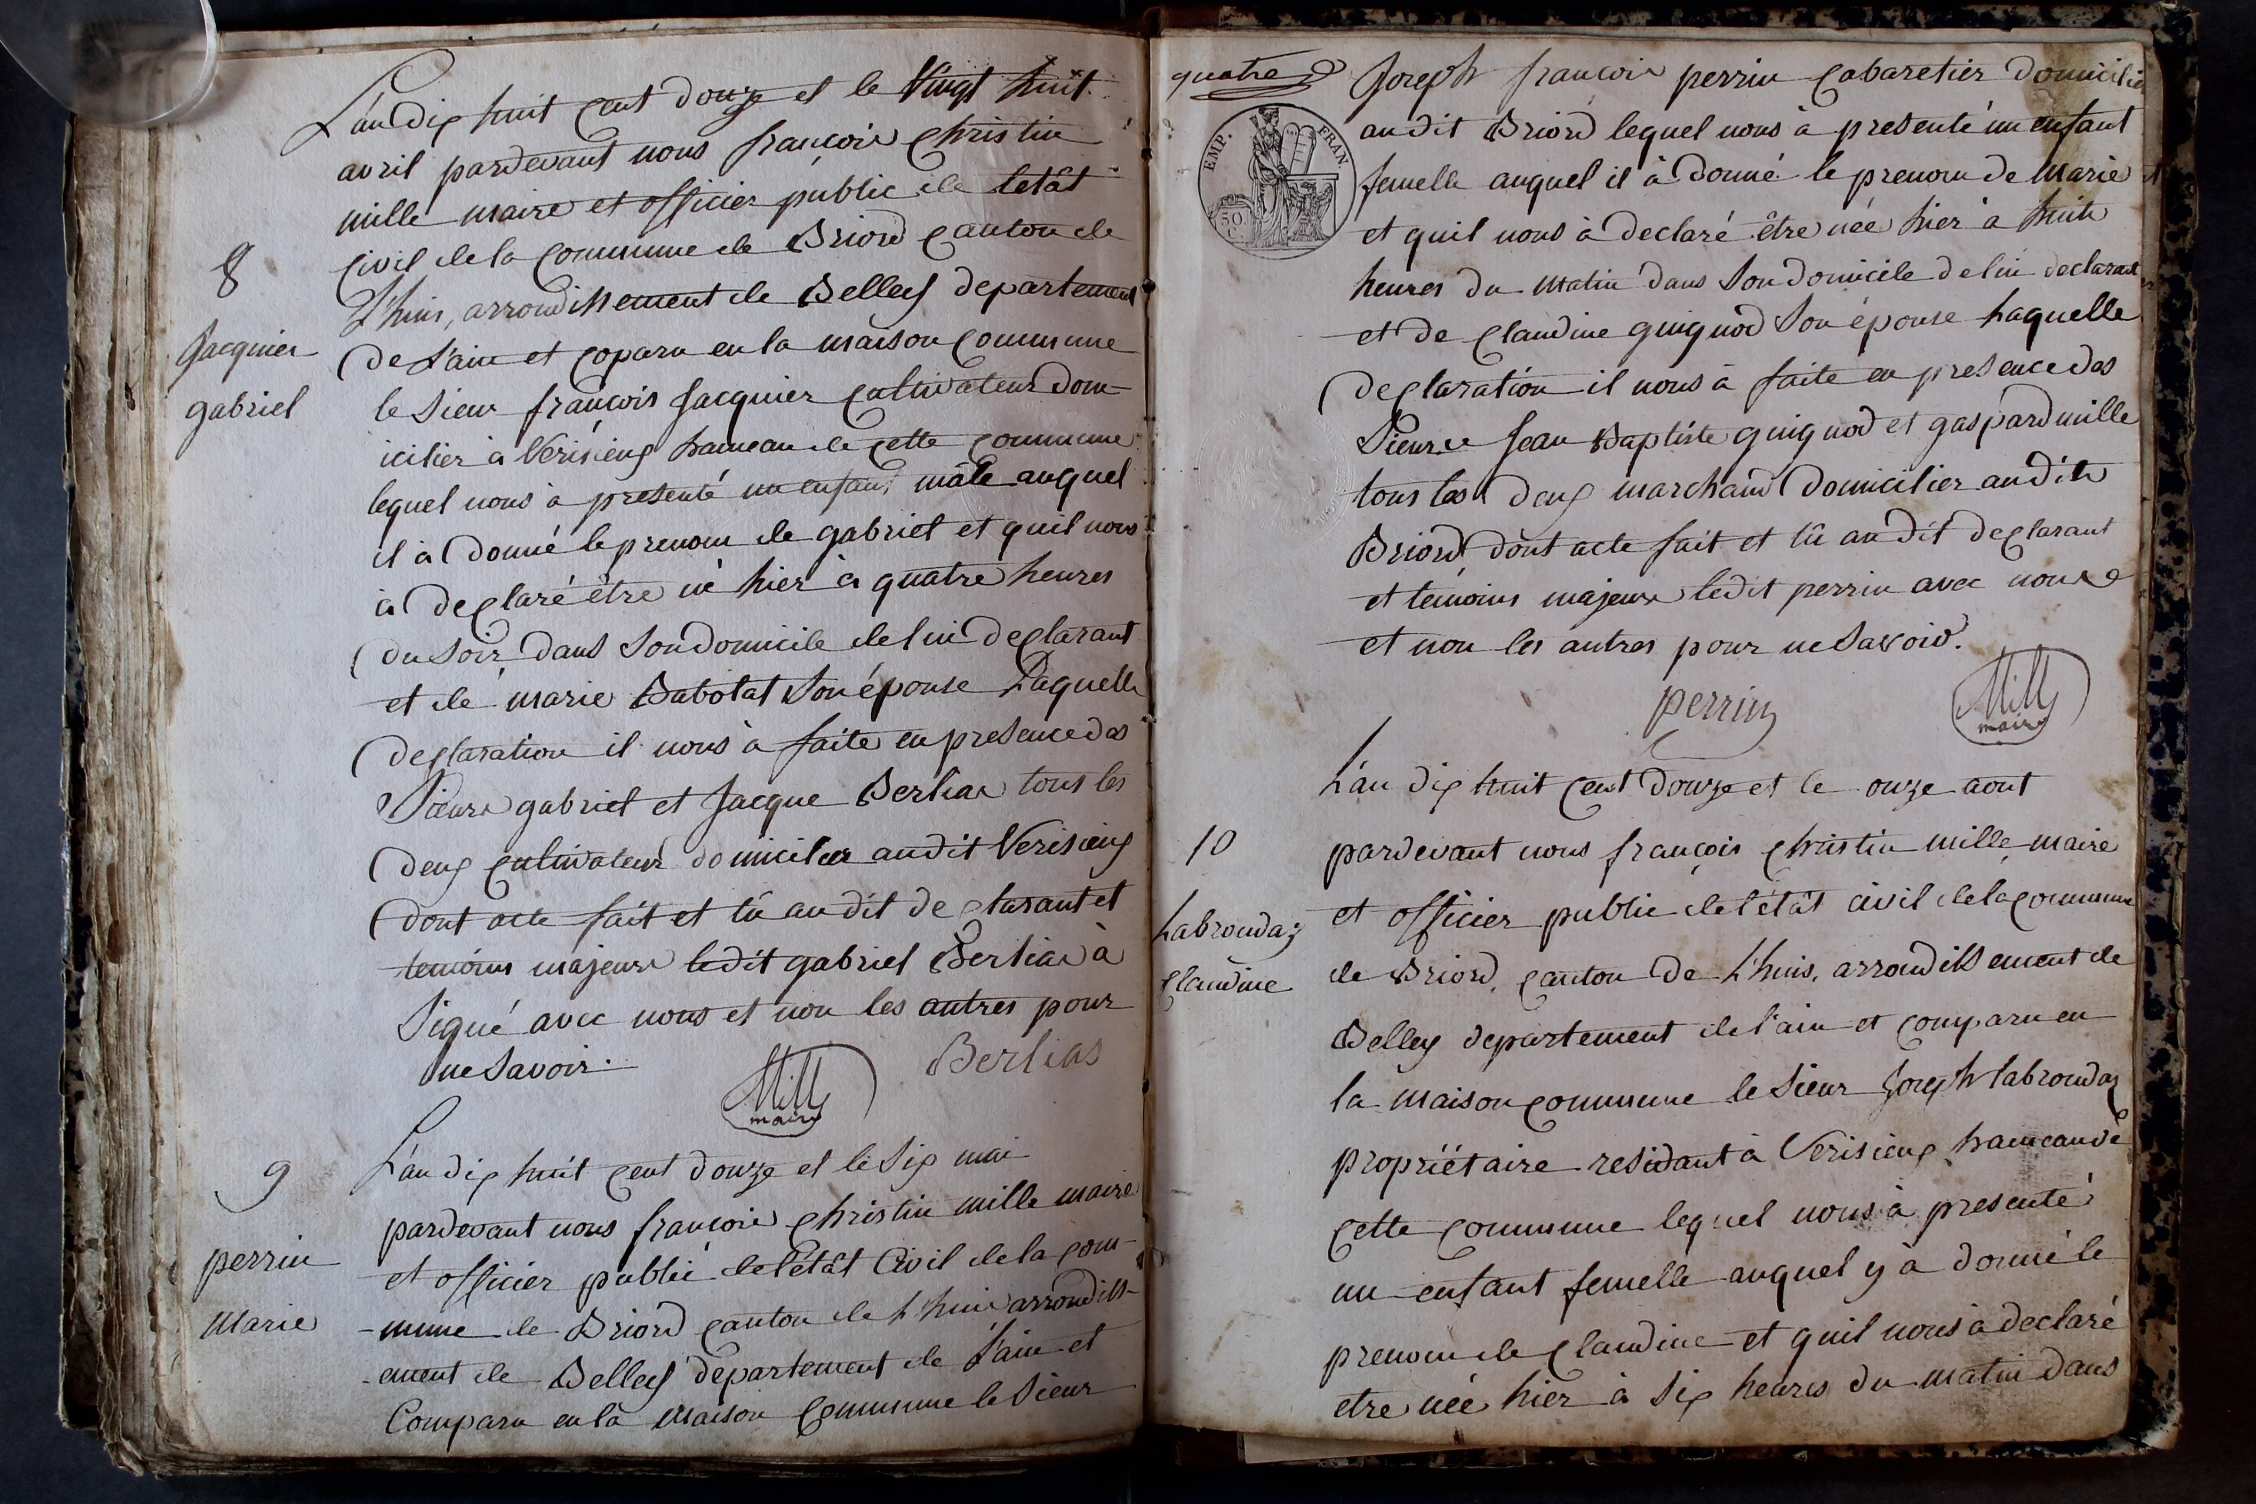 L'an dix huit cent douze et le Vingt huit
avril pardevant nous françois christin
mille maire et officier public de letât
Civil de la Commune de Briord Canton de
L'huis, arrondissement de Belley departement
8
Jacquier
gabriel
de L'ain et Coparu en la maison Commune
le Sieur françois Jacquier Cultivateur dom-
icilier à Verisieux hameau de cette Commune
lequel nous à presenté un enfant mâle auquel
il à Donné le prenom de gabriel et quil nous
à Declaré être né hier à quatre heures
du Soir dans Son domicile de lui Declarant
et de marie Babolat Son épouse Laquelle
Declaration il nous à faite en presence des
Sieurs gabriel et Jacque Berlias tous les
Deux Cultivateur domicilier audit Verisieux
Dont acte fait et lû au dit Declarant et
temoins majeurs ledit gabriel Berlias à
Signé avec nous et non les autres pour
ne Savoir.
Berlias
Mille
maire
9
perrin
Marie
L'an dix huit Cent douze et le Six mai
pardevant nous françois christin mille maire
et officier public de l'état Civil de la Com-
-mune de Briord Canton de L'huis arrondiss-
-ement de Belley departement de L'ain et
Comparu en la Maison Commune le Sieur
quatre
EMP. FRAN.
50
Joseph françois perrin Cabaretier Domicilié
audit Briord lequel nous à presenté un enfant
femelle auquel il à Donné le prenom de Marie
et quil nous à declaré être née hier à huit
heures du Matin dans Son domicile de lui declarant
et de Claudine guignod Son épouse Laquelle
Declaration il nous à faite en presence des
Sieurs Jean Baptiste guignod et gaspard mille
tous les Deux marchand Domicilier audit
Briord, dont acte fait et lû au dit Declarant
et temoins majeurs ledit perrin avec nous
et non les autres pour ne Savoir.
perrin
Mille
maire
10
Labroudaz
Claudine
L'an dix huit Cent Douze et le onze aout
pardevant nous françois christin mille maire
et officier public de l'étât civil de la Commune
de Briord, Canton de L'huis, arrondissement de
Belley departement de l'ain et Comparu en
la Maison Commune le Sieur Joseph labroudaz
propriétaire residant à Verisieux hameau de
Cette Commune lequel nous à presenté
un enfant femelle auquel y à donné le
prenom de Claudine et quil nous à declaré
etre née hier à Six heures du matin dans